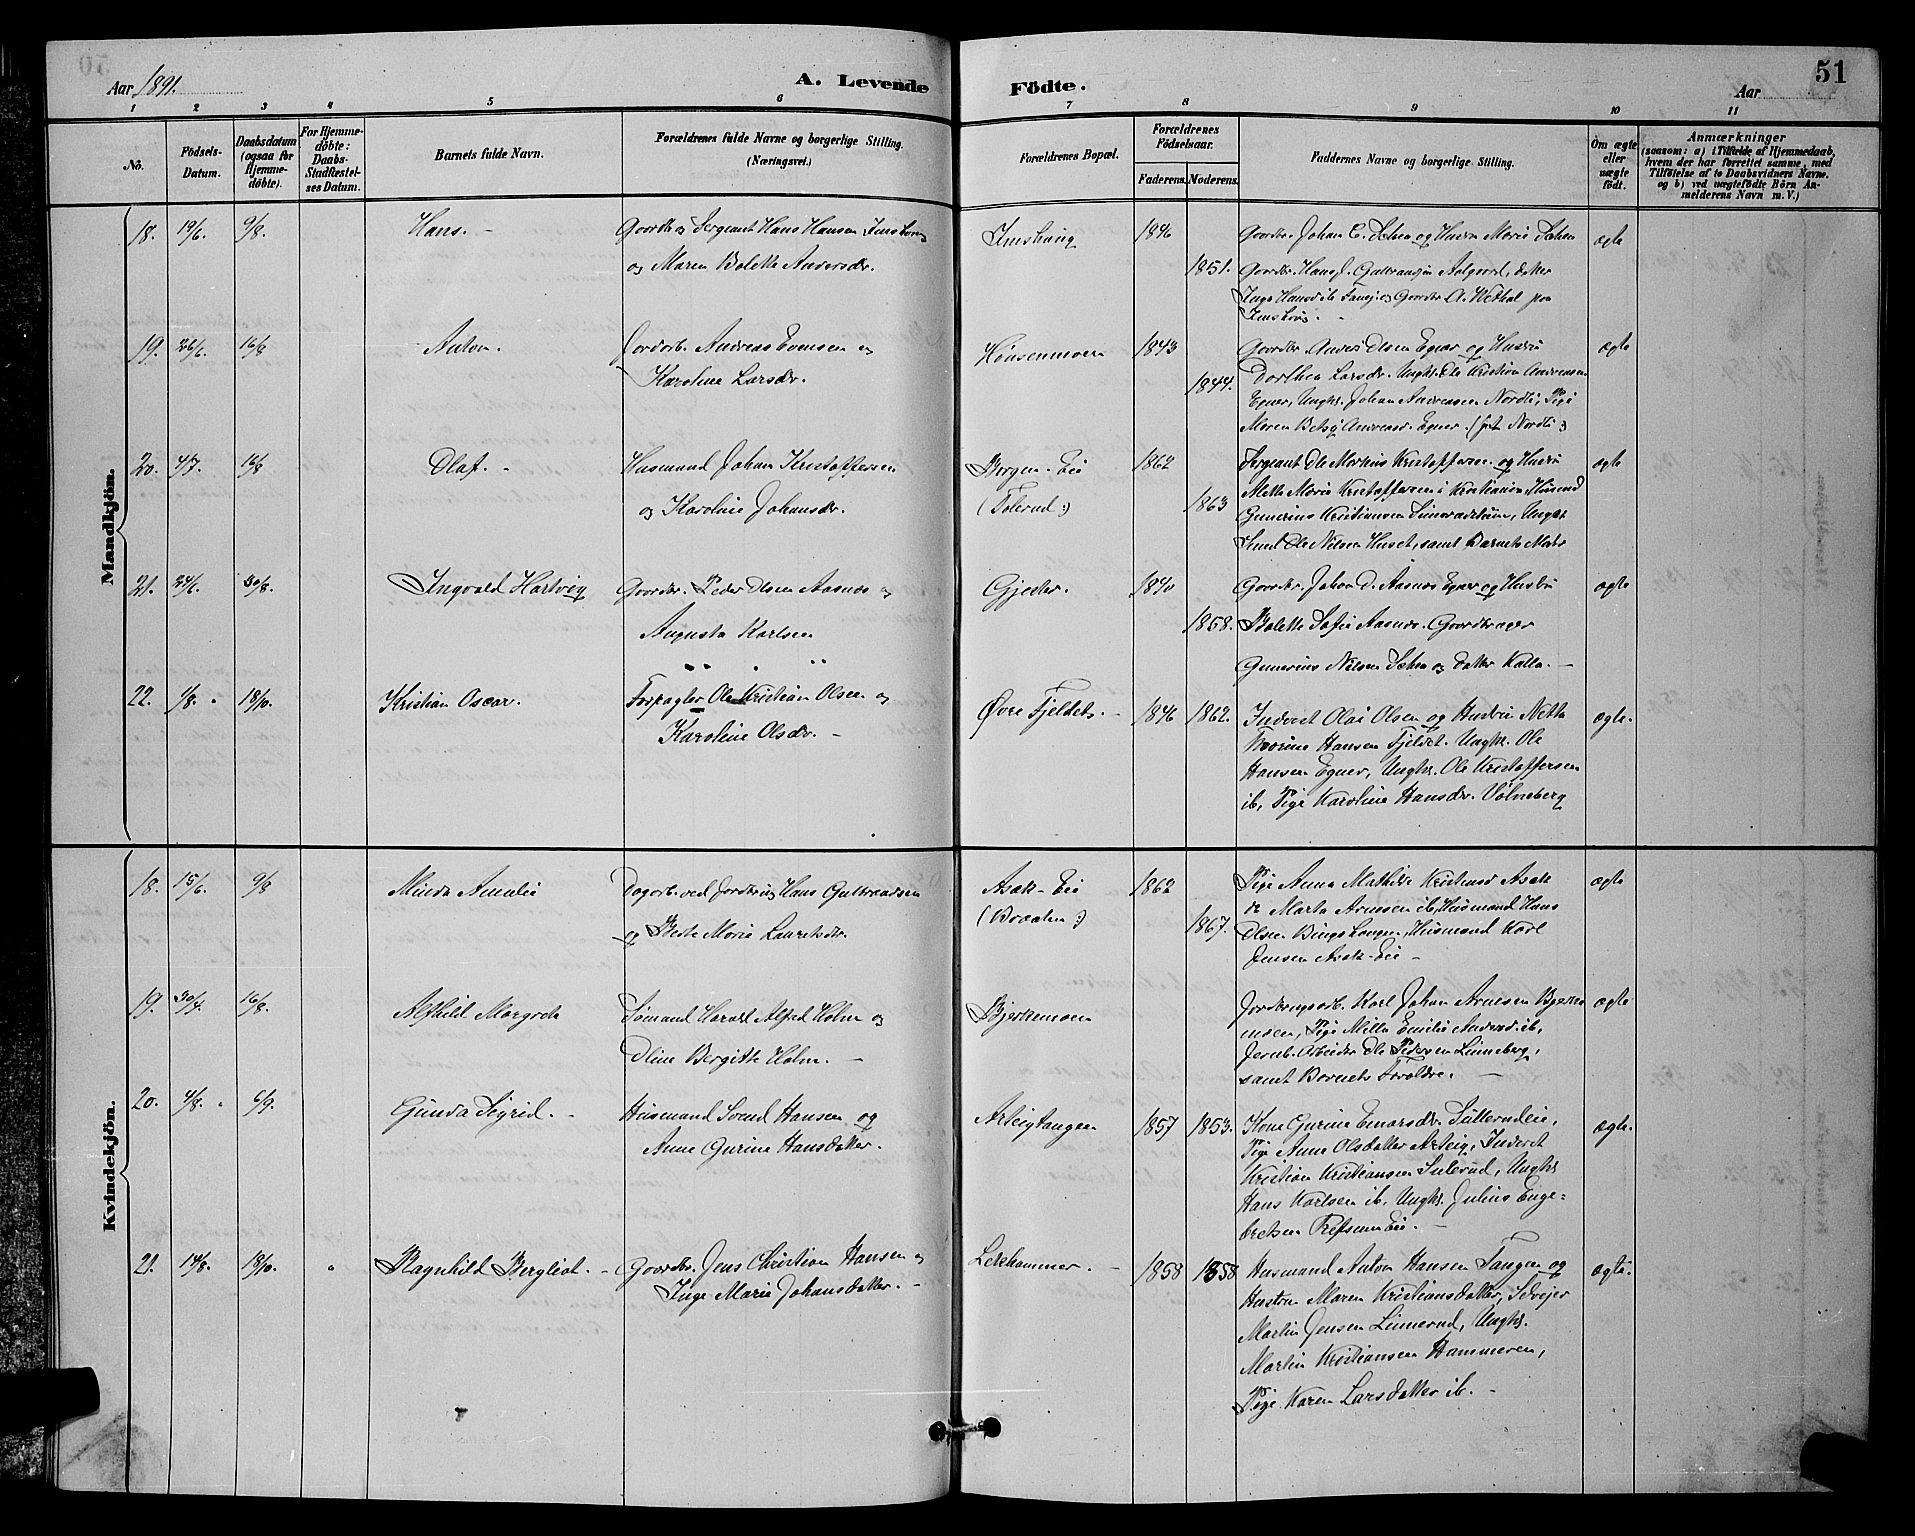 Aar 1891.
A. Levende
Födte.
Aar
51
1 2 3 4 5 6 7 8 9 10 11
No.
Födsels-
Datum.
Daabsdatum
(ogsaa for
Hjemme-
döbte).
For Hjemme-
döbte:
Daabs-
Stadfæstel-
ses Datum.
Barnets fulde Navn.
Forældrenes fulde Navne og borgerlige Stilling.
(Næringsvei.)
Forældrenes Bopæl.
Forældrenes
Födselsaar.
Faderens. Moderens.
Faddernes Navne og borgerlige Stilling.
Om ægte
eller
uægte
födt.
Anmærkninger
(saasom: a) i Tilfælde af Hjemmedaab,
hvem der har forrettet samme, med
Tilföielse af to Daabsvidners Navne.
og b) ved uægtefödte Börn An-
melderens Navn m. V.)
Mandkjön.
18. 19/6. 9/8. Hans. - Sergeant Hans Hansen
og Maren Bolette Andersdr.
Imshaug 1846
1851.
Gaardbr. Johan E. og Hustru Marie
Gaardbr. Hans J. Guttormsen Aalgaard, Datter
Inga Hansd ib. og Gaardbr A. Wethal paa
19. 26/6. 16/8 Anton. Andreas Evensen og
Karoline Larsdr.
Hønsenmoen 1843
1844.
Gaardbr. Anders Olsen Egner og Hustru
Dorthea Larsdr. Ungk. Ole Kristian Andreasen
Egner, Ungkr. Johan Andreasen Nordli, Pige
Maren Betsy Andreasd. Egner. Nordli
ægte
20. 4/7. 16/8 Olaf. - Husmand Johan Kristoffersen
og Karoline Johansdr.
Borgen-Eie
(Tolerud:)
1862
1863
Sergeant Ole Markus Kristoffersen og Hustru
Mette Marie Kristoffersen i Kristiania, Husmd
Gunerius Kristiansen Ungkr
Ole Nilsen Huset, samt Barnets Moder
ægte
21. 24/6. 30/8. Ingvald Hartvig Gaardbr. Peder Olsen Aasnes og
Augusta Karlsen
Gjeder. 1840
1858.
Gaardbr. Johan O. Aasnes Egner og Hustru
Bolette Sofie Aasnes. Gaardbruger
Gunerius Nilsen og Datter Kalla. -
ægte
22. 1/8. 18/10. Kristian Oscar. Forpagter Ole Kristian Olsen og
Karoline Olsdr. -
Øvre Fjeldet. - 1846 1862.
Inderst Olai Olsen og Hustru Netta
Hansen Fjeldet. Ungkr. Ole
Hansen Egner, Ungkr. Ole Kristoffersen
ib, Pige Karoline Hansdr. Volneberg
ægte.
Kvindekjön.
18. 15/6. 9/8 Minda Amalie Dagarb. ved Hans Guttormsen
og Berte Marie Lauritsdr.
Asak-Eie
(Braaten:)
1862
1867.
Pige Anna Mathilde Kristensd Asak
Marta Arnesen ib, Husmand Hans
Olsen Husmand Karl
Jensen Asak-Eie -
ægte
19. 30/4. 16/8. Alfhild Margrete Sømand Harald Alfred Holm og
Oline Bergitte Holm. -
Bjerkemoen
Karl Johan Arnesen Bjerke
moen, Pige Milla Emilie Andersd. ib,
Jernb. Arbeider Ole Pedersen Linneberg,
samt Barnets Forældre. -
ægte
20. 4/8. 6/9. Gunda Sigrid. - Husmand Svend Hansen og
Anne Gurine Hansdatter.
Arteigtangen 1857 1853.
Kone Gurine Einarsdr. Sullerudeie,
Pige Anne Olsdatter Arteig, Inderst
Kristian Kristiansen Ungkr.
Hans Karlsen ib, Ungkr. Julius Enge=
bretsen Refsum Eie. -
ægte.
21. 14/8. 18/10. " Ragnhild Bergliot. - Gaardbr. Jens Christian Hansen og
Inge Marie Johansdatter. -
Lekhammer. - 1858 1858
Husmand Anton Hansen Tangen og
Hustru Maren Kristiansdatter, Selveier
Martin Jensen Linnerud, Ungkr.
Martin Kristiansen Hammeren,
Pige Karen Larsdatter ib. -
ægte.